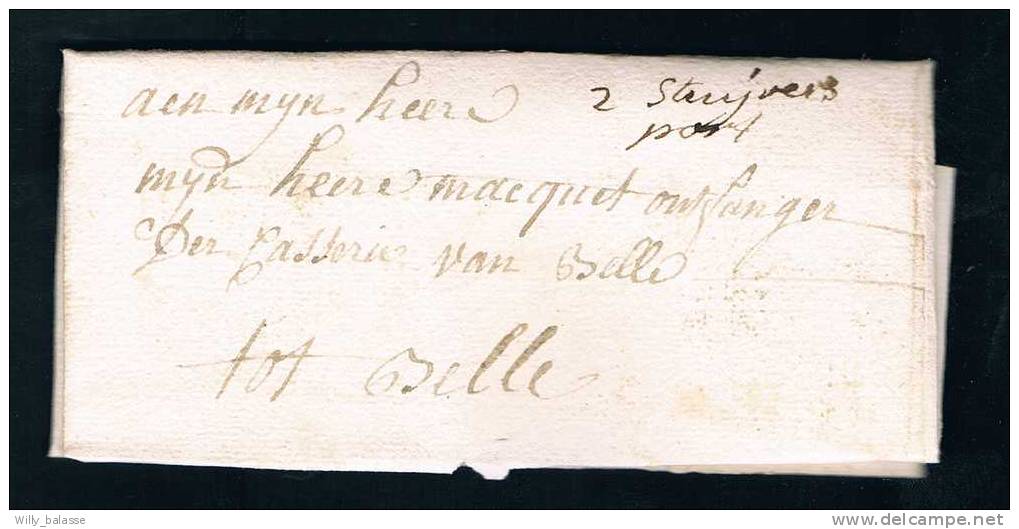 aen mijn heere
2 Stuijvers
port
mijn heere macquet ontfanger
der Casselrie van Belle
tot Belle
Willy_balasse
delcampe.net